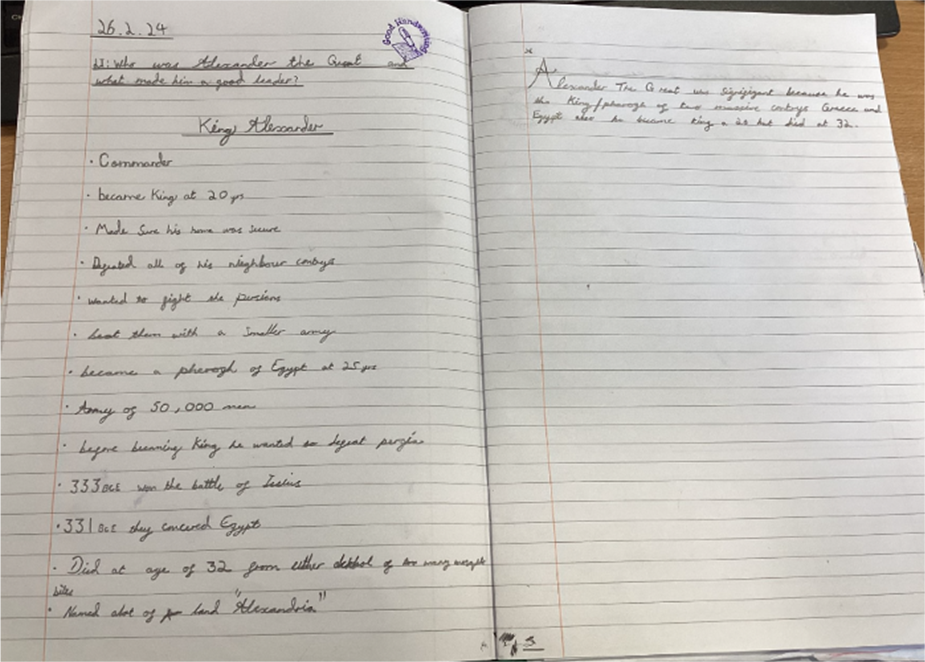 26.2.24
Good Handwriting
LI: Who was Alexander the Great and
what made him a good leader?
King Alexander
· Commander
· became King at 20 yrs
· Made Sure his home was secure
· Defeated all of his neighbour contrys
· wanted to fight the persians
· beat them with a smaller army
· became a pheragh of Egypt at 25 yrs
· Army of 50,000 men
· before becoming King he wanted to defeat persia
· 333 BCE won the battle of Issius
· 331 BCE they concered Egypt
· Died at age of 32 from either of too many mosqit
bites
· Named alot of land "Alexandria"
Alexander The Great was signifigant because he was
the King/pharogh of two massive contrys Greece and
Egypt he became king a 20 but died at 32.